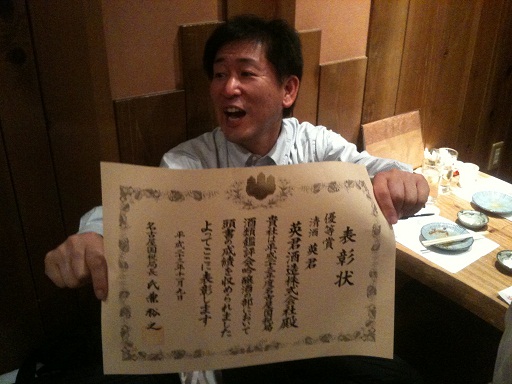 表彰状
優等賞
清酒 英君
英君酒造株式会社殿
貴社は平成二十三年度名古屋国税局
酒類鑑評会吟醸酒の部において
頭書の成績を収められました
よってここに表彰します
名古屋国税局長